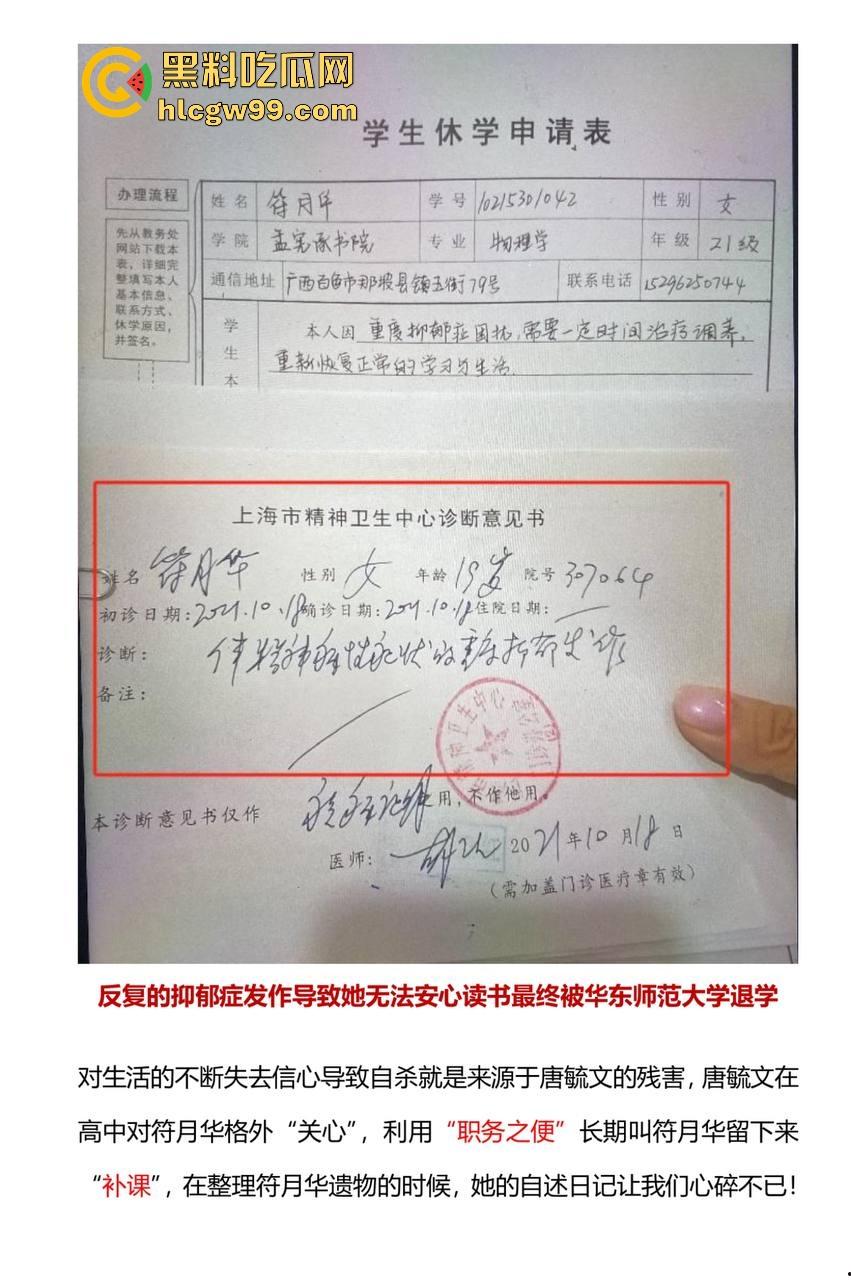 黑料吃瓜网
hlcgw99.com
学生休学申请表
办理流程
先从教务处
网站下载本
表，详细完
整填写本人
基本信息、
联系方式、
休学原因，
并签名。
姓名 符月华 学号 10215301042 性别 女
学院 孟宪承书院 专业 物理学 年级 21级
通信地址 广西百色市那坡县镇玉街79号 联系电话 15296250744
学生本
本人因 重度抑郁症困扰，需要一定时间治疗调养，
重新恢复正常的学习与生活.
上海市精神卫生中心诊断意见书
姓名 符月华 性别 女 年龄 19岁 院号 307064
初诊日期：2021.10.18 确诊日期：2021.10.18 住院日期：
诊断： 伴精神病性症状的重度抑郁发作
备注：
本诊断意见书仅作 用，不作他用。
医师： 2021年10月18日
（需加盖门诊医疗章有效）
反复的抑郁症发作导致她无法安心读书最终被华东师范大学退学
对生活的不断失去信心导致自杀就是来源于唐毓文的残害，唐毓文在
高中对符月华格外“关心”，利用“职务之便”长期叫符月华留下来
“补课”，在整理符月华遗物的时候，她的自述日记让我们心碎不已！